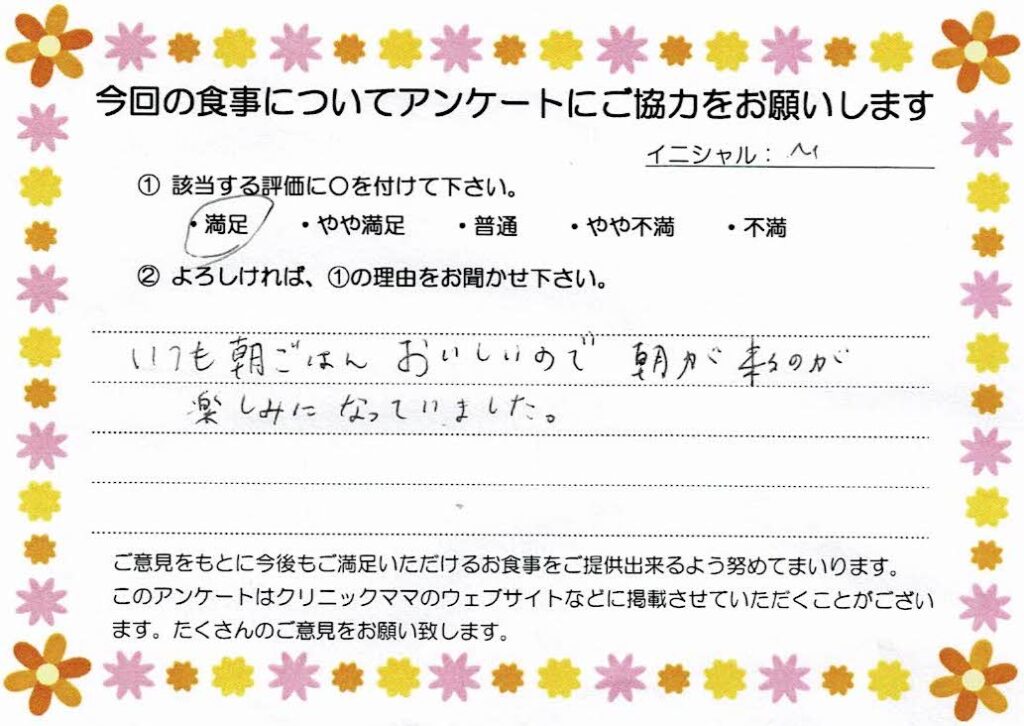 今回の食事についてアンケートにご協力をお願いします
イニシャル： M
① 該当する評価に〇を付けて下さい。
・満足 ・やや満足 ・普通 ・やや不満 ・不満
② よろしければ、①の理由をお聞かせ下さい。
いつも朝ごはん おいしいので 朝が 来るのが
楽しみに なっていました。
ご意見をもとに今後もご満足いただけるお食事をご提供出来るよう努めてまいります。
このアンケートはクリニックママのウェブサイトなどに掲載させていただくことがござい
ます。たくさんのご意見をお願い致します。